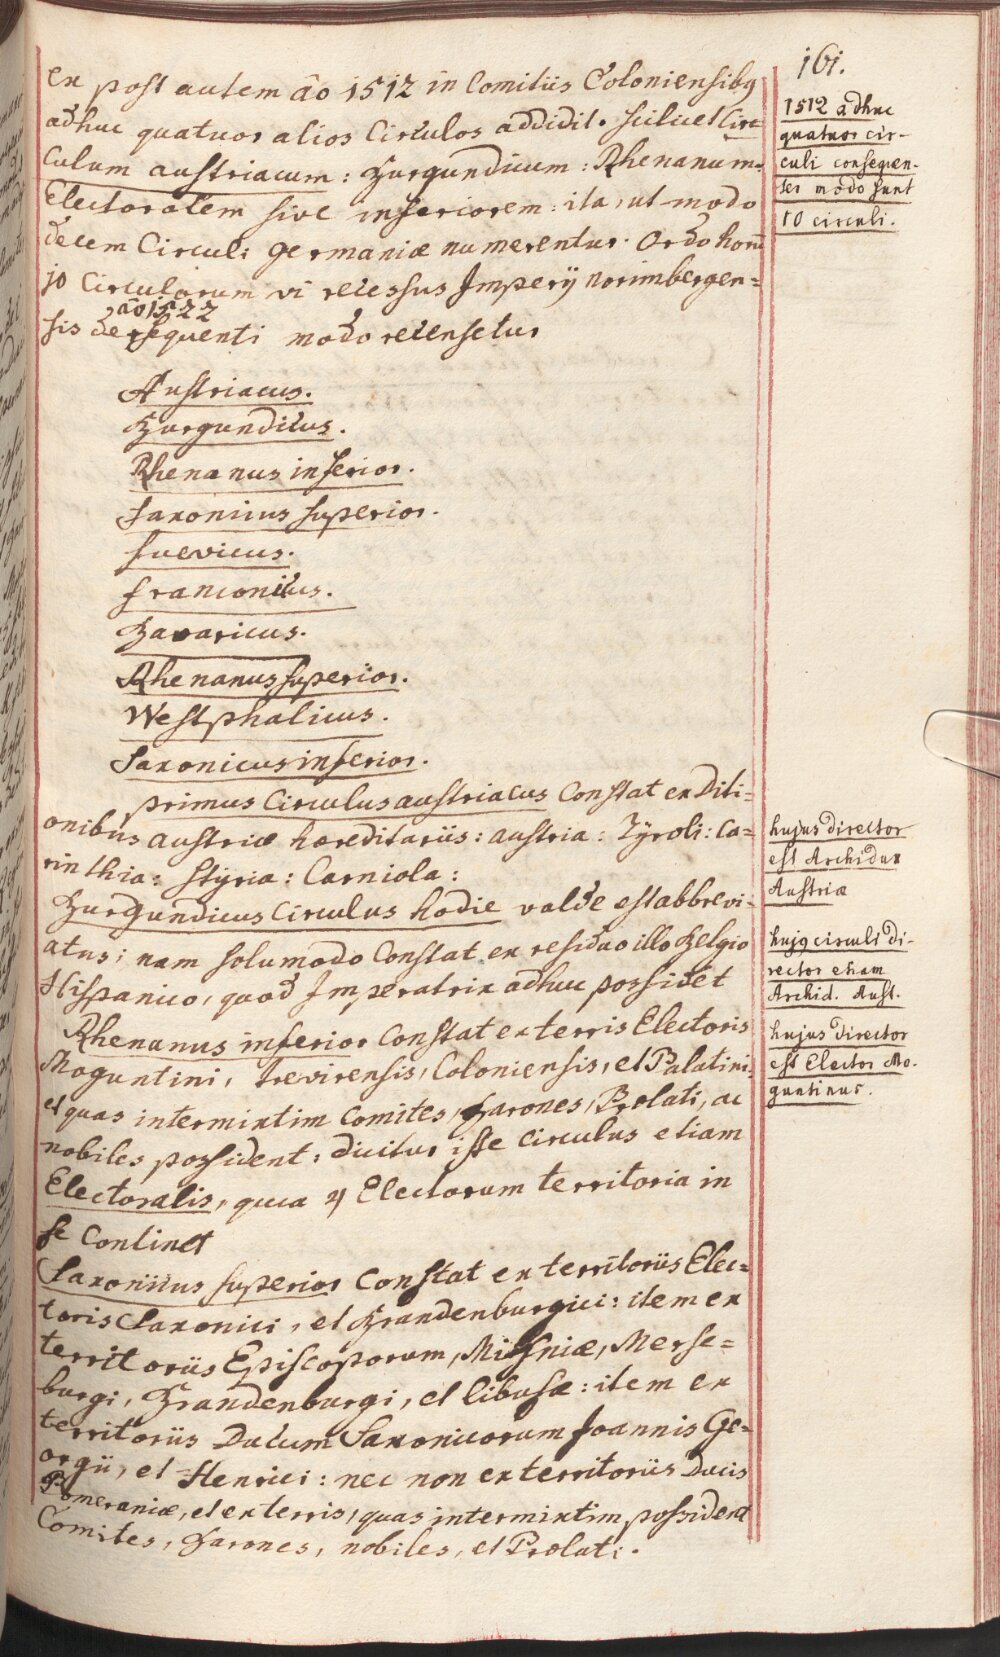 161.
ex post autem ão 1512 in Comitiis Coloniensibq
adhuc quatuor alios Circulos addidit. scilicet Cir-
culum austriacum: Burgundicum: Rhenanum
Electoralem sive inferiorem: ita, ut modo
decem Circuli germaniæ numerentur. Ordo horũ
10 Circulorum vi recessus Imperij norimbergen=
ão 1522
sis de sequenti modo recensetur
Austriacus.
Burgundicus.
Rhenanus inferior.
Saxonicus superior.
suevicus.
franconicus.
Bavaricus.
Rhenanus superior.
Westphalicus.
Saxonicus inferior.
primus Circulus austriacus Constat ex Diti=
onibus austriæ hæreditariis: austria: Tÿroli: Ca=
rinthia: Stÿria: Carniola:
Burgundicus Circulus hodie valde est abbrevi-
atus; nam solumodo Constat ex residuo illo Belgio
Hispanico, quod Imperatrix adhuc possidet
Rhenanus inferior Constat ex terris Electoris
Moguntini, trevirensis, Coloniensis, et Palatini,
et quas intermixtim Comites, Barones, Prælati, ac
nobiles possident: dicitur iste Circulus etiam
Electoralis, quia 4 Electorum territoria in
se Continet
Saxonicus superior Constat ex territoriis Elec=
toris Saxonici, et Brandenburgici: item ex
territoriis Episcoporum, Misniæ, Merse=
burgi, Brandenburgi, et libusæ: item ex
territoriis Ducum Saxonicorum Joannis Ge=
orgii, et Henrici: nec non ex territoriis Ducis
Pomeraniæ, et ex terris, quas intermixtim possident
Comites, Barones, nobiles, et Prælati.
1512 adhuc
quatuor cir-
culi consequen-
ter modo sunt
10 circuli.
hujus director
est Archidux
Austriæ
hujq circuli di-
rector etiam
Archid. Aust.
hujus director
est Elector Mo-
guntinus.